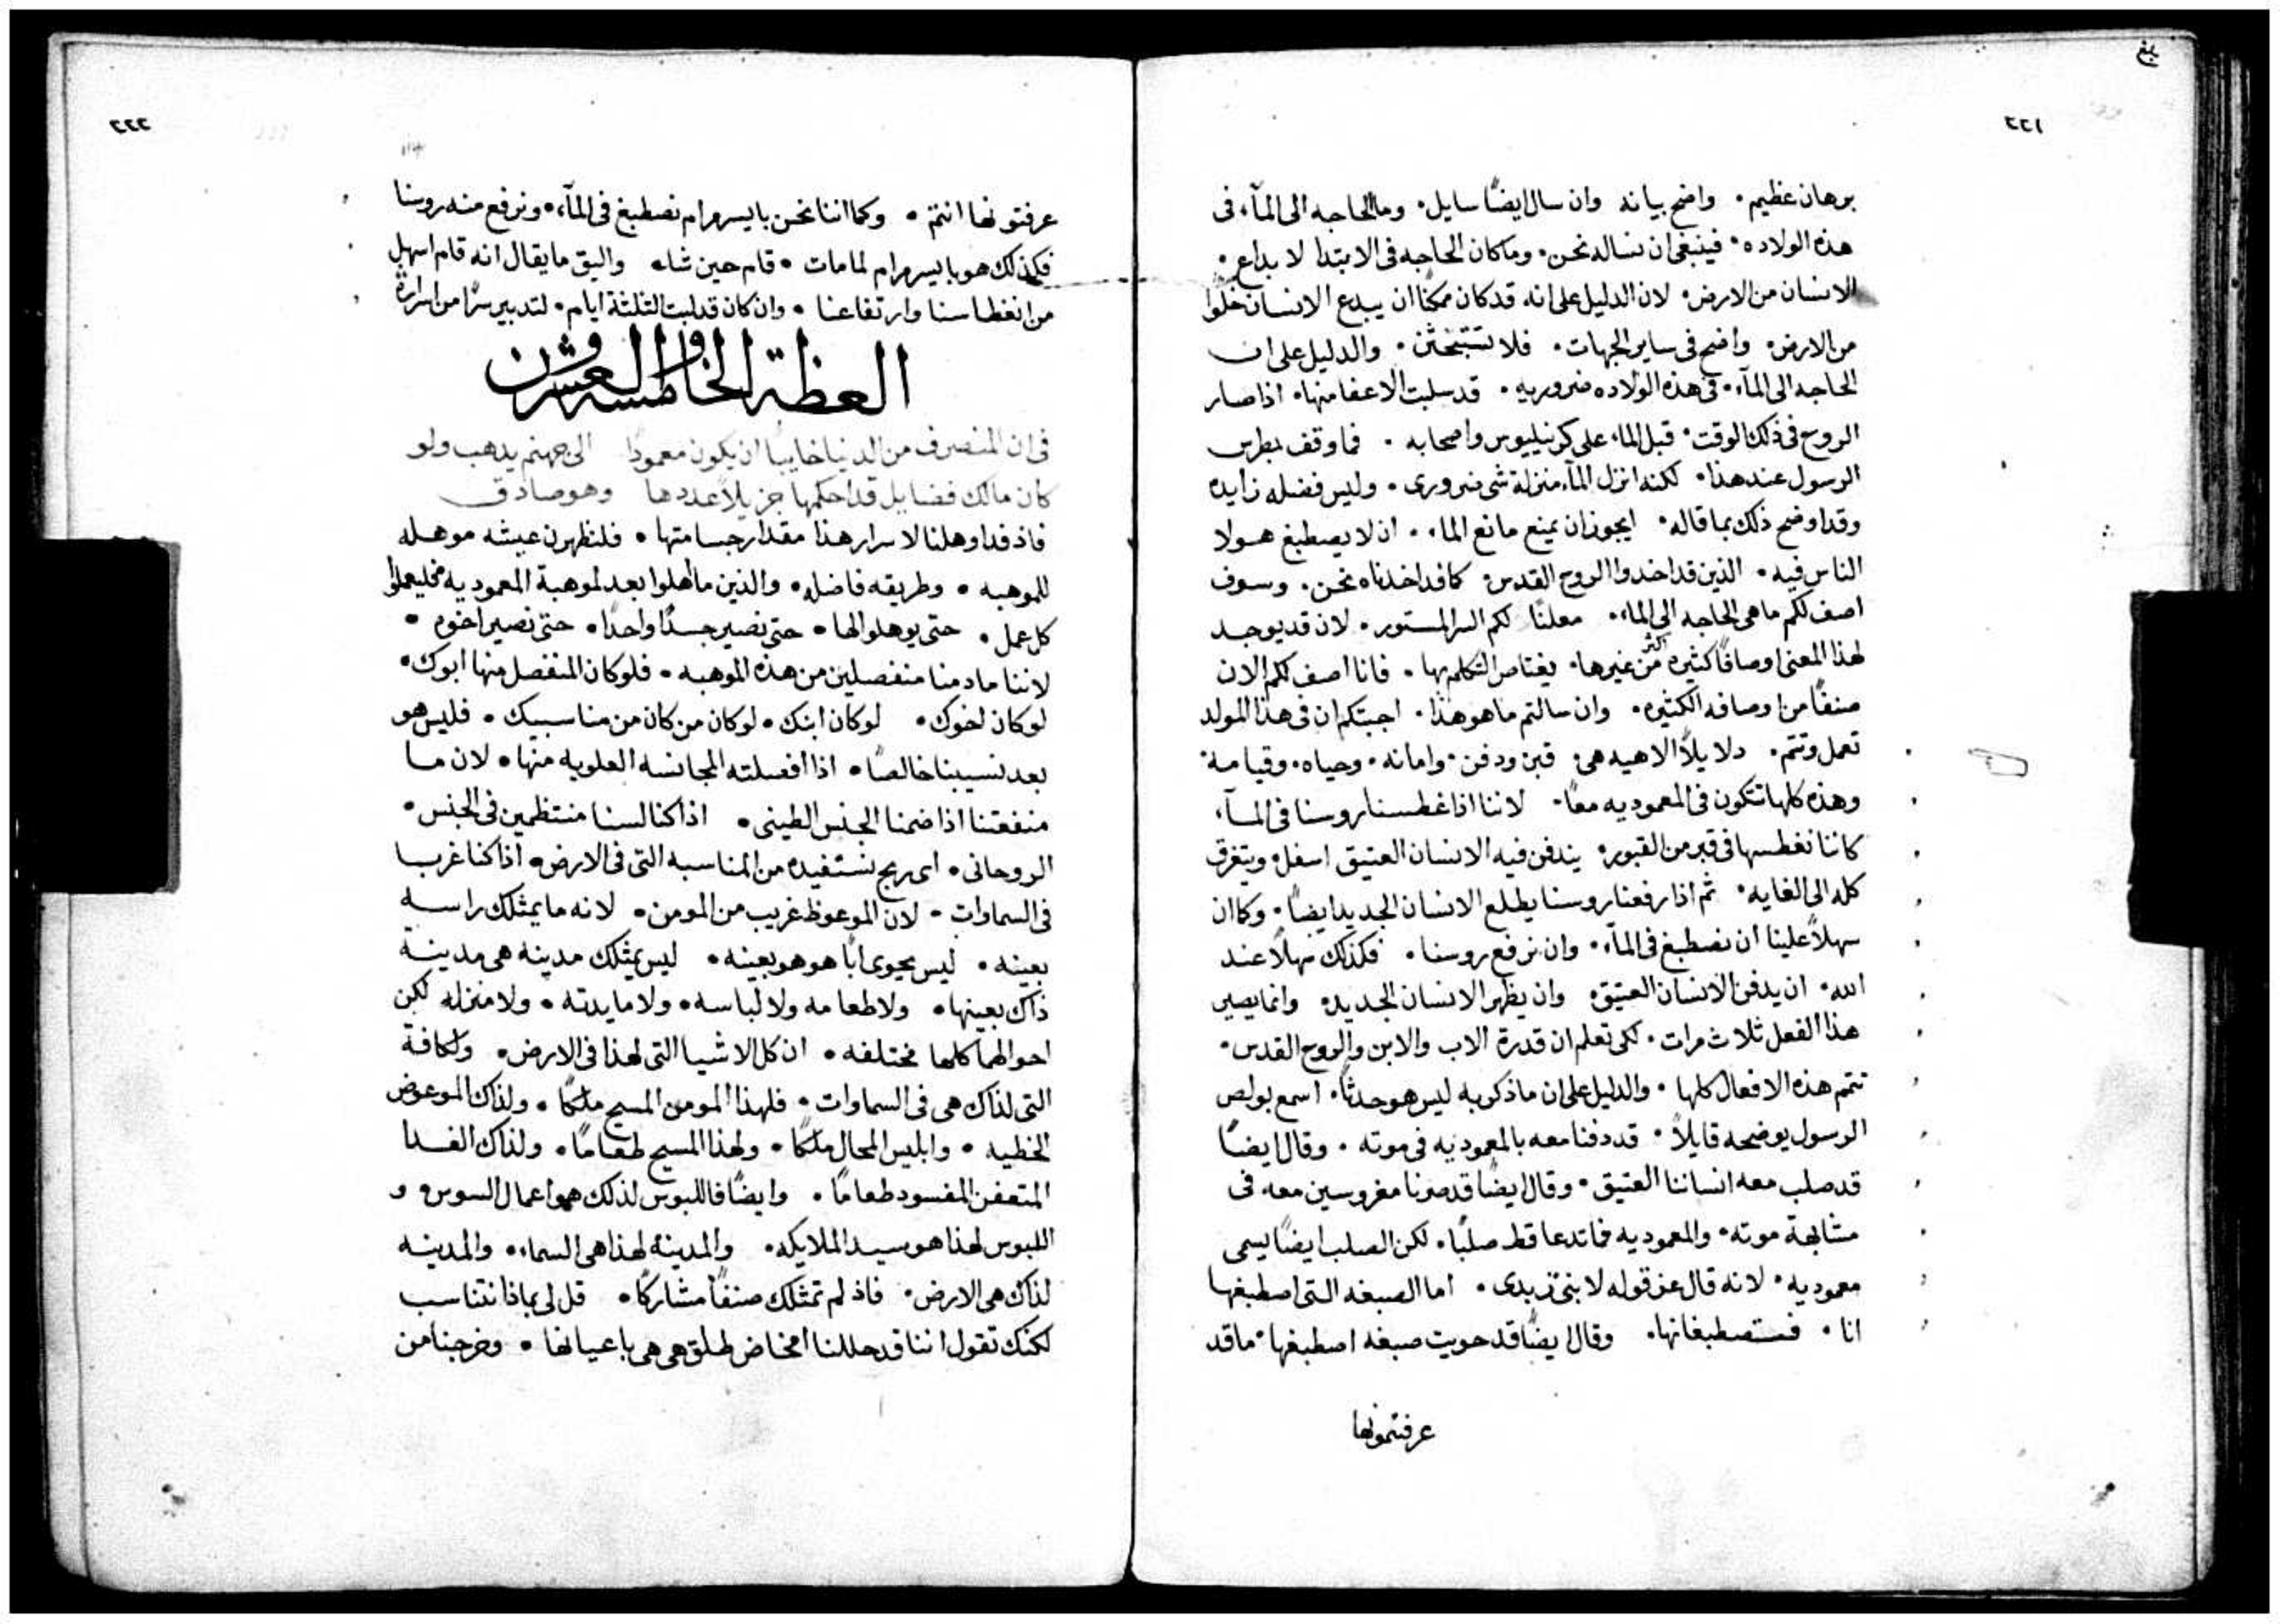 ٢٢١
برهان عظيم • واضح بيانه وان سال ايضًا سايل • وما الحاجه الى المآء فى
هذه الولاده • فينبغى ان نساله نحن • وما كان الحاجه فى الابتدا لابداع •
الانسان من الارض • لان الدليل على انه قد كان ممكنًا ان يبدع الانسان خلوًا
من الارض • واضح فى ساير الجهات • فلا تستبحثن • والدليل على ان
الحاجه الى المآء • فى هذه الولاده ضروريه • قد سلبت الاعفا منها • اذا صار
الروح فى ذلك الوقت • قبل الماء على كرنيليوس واصحابه • فما وقف بطرس
الرسول عند هذا • لكنه انزل المآء منزلة شى ضرورى • وليس فضله زايده
وقد اوضح ذلك بما قاله • ايجوز ان يمنع مانع الماء • ان لا يصطبغ هولا
الناس فيه • الذين قد اخذوا الروح القدس • كما قد اخذناه نحن • وسوف
اصف لكم ما هى الحاجه الى الماء • معلنًا لكم السر المستور • لان قد يوجد
لهذا المعنى اوصافًا كثيره اكثر من غيرها • يعتاص التكلم بها • فانا اصف لكم الان
صنفًا من اوصافه الكثيره • وان سالتم ما هو هذا • اجبتكم ان فى هذا المولد
تعمل وتتم • دلايلاً الاهيه هى • قبر ودفن • واماته • وحياه • وقيامه •
وهذه كلها تتكون فى المعموديه معًا • لاننا اذا غطسنا روسنا فى المآء
كاننا نغطسها فى قبر من القبور • يندفن فيه الانسان العتيق اسفل ويتغرق
كله الى الغايه • ثم اذا رفعنا روسنا يطلع الانسان الجديد ايضًا • وكما ان
سهلاً علينا ان نصطبغ فى المآء • وان نرفع روسنا • فكذلك سهلاً عند
الله • ان يدفن الانسان العتيق • وان يظهر الانسان الجديد • وانما يصير
هذا الفعل ثلاث مرات • لكى تعلم ان قدرة الاب والابن والروح القدس •
تتمم هذه الافعال كلها • والدليل على ان ما ذكر به ليس هو حدثًا • اسمع بولص
الرسول يوضحه قايلاً • قد دفنا معه بالمعموديه فى موته • وقال ايضًا
قد صلب معه انساننا العتيق • وقال ايضًا قد صرنا مغروسين معه فى
مشابهة موته • والمعموديه فما تدعا قط صلبًا • لكن الصلب ايضًا يسمى
معموديه • لانه قال عن قوله لابنى زبدى • اما الصبغه التى اصطبغها
انا • فستصطبغانها • وقال ايضًا قد حويت صبغه اصطبغها • ما قد
عرفتموها
٢٢٢
عرفتموها انتم • وكما اننا نحن بايسر مرام نصطبغ فى المآء • ونرفع منه روسنا
فكذلك هو بايسر مرام لما مات • قام حين شاء واليق ما يقال انه قام اسهل
من انغطاسنا وارتفاعنا • وان كان قد لبث الثلثة ايام • لتدبير سرًا من اسراره
العظة الخامسة والعشرون
فى ان المنصرف من الدنيا خايبًا ان يكون معمودًا الى جهنم يذهب ولو
كان مالك فضايل قد احكمها جزيلاً عددها وهو صادق
فاذ قد اوهلنا لاسرار هذا مقدار جسامتها • فلنظهرن عيشه موهله
للموهبه • وطريقه فاضله • والذين ما اهلوا بعد لموهبة المعموديه فليعملوا
كل عمل • حتى يوهلوا لها • حتى نصير جسدًا واحدًا • حتى نصير اخوه •
لاننا ما دمنا منفصلين من هذه الموهبه • فلو كان المنفصل منها ابوك •
لو كان اخوك • لو كان ابنك • لو كان من كان من مناسبيك • فليس هو
بعد نسيبنا خالصًا • اذا افصلته المجانسه العلويه منها • لان ما
منفعتنا اذا ضمنا الجنس الطينى • اذا كنا لسنا منتظمين فى الجنس •
الروحانى • اى ربح نستفيده من المناسبه التى فى الارض • اذا كنا غربا
فى السماوات • لان الموعوظ غريب من المومن • لانه ما يمتلك راسه
بعينه • ليس يحوى ابًا هو هو بعينه • ليس يمتلك مدينه هى مدينة
ذاك بعينها • ولا طعامه ولا لباسه • ولا مايدته • ولا منزله لكن
احوالهما كلها مختلفه • ان كل الاشيا التى لهذا فى الارض • وكافة
التى لذاك هى فى السماوات • فلهذا المومن المسيح ملكًا • ولذاك الموعوض
الخطيه • وابليس المحال ملكًا • ولهذا المسيح طعامًا • ولذاك الغدا
المتعفن المفسود طعامًا • وايضًا فاللبوس لذلك هو اعمال السوس • و
اللبوس لهذا هو سيد الملايكه • والمدينة لهذا هى السماء • والمدينه
لذاك هى الارض • فاذ لم تمتلك صنفًا مشاركًا • قل لى بماذا نتناسب
لكنك تقول اننا قد حللنا امخاض طلق هى هى باعيانها • وخرجنا من